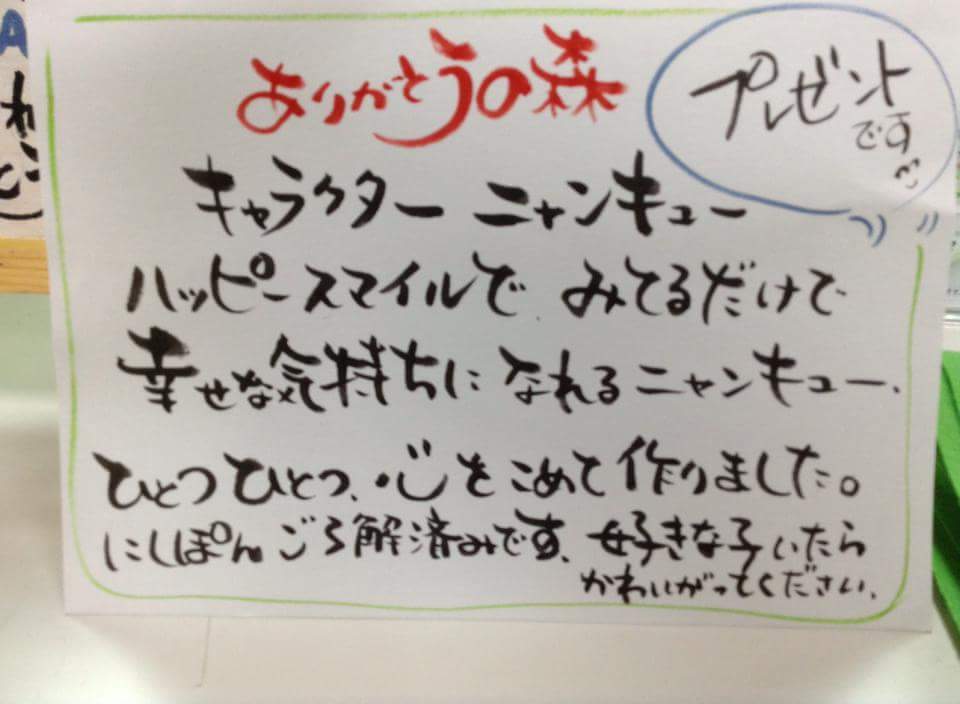 ありがとうの森
プレゼント
です
キャラクター ニャンキュー
ハッピースマイルで みてるだけで
幸せな気持ちに なれるニャンキュー、
ひとつひとつ、心をこめて作りました。
にしぽん ごろ解済みです、好きな子いたら
かわいがってください、